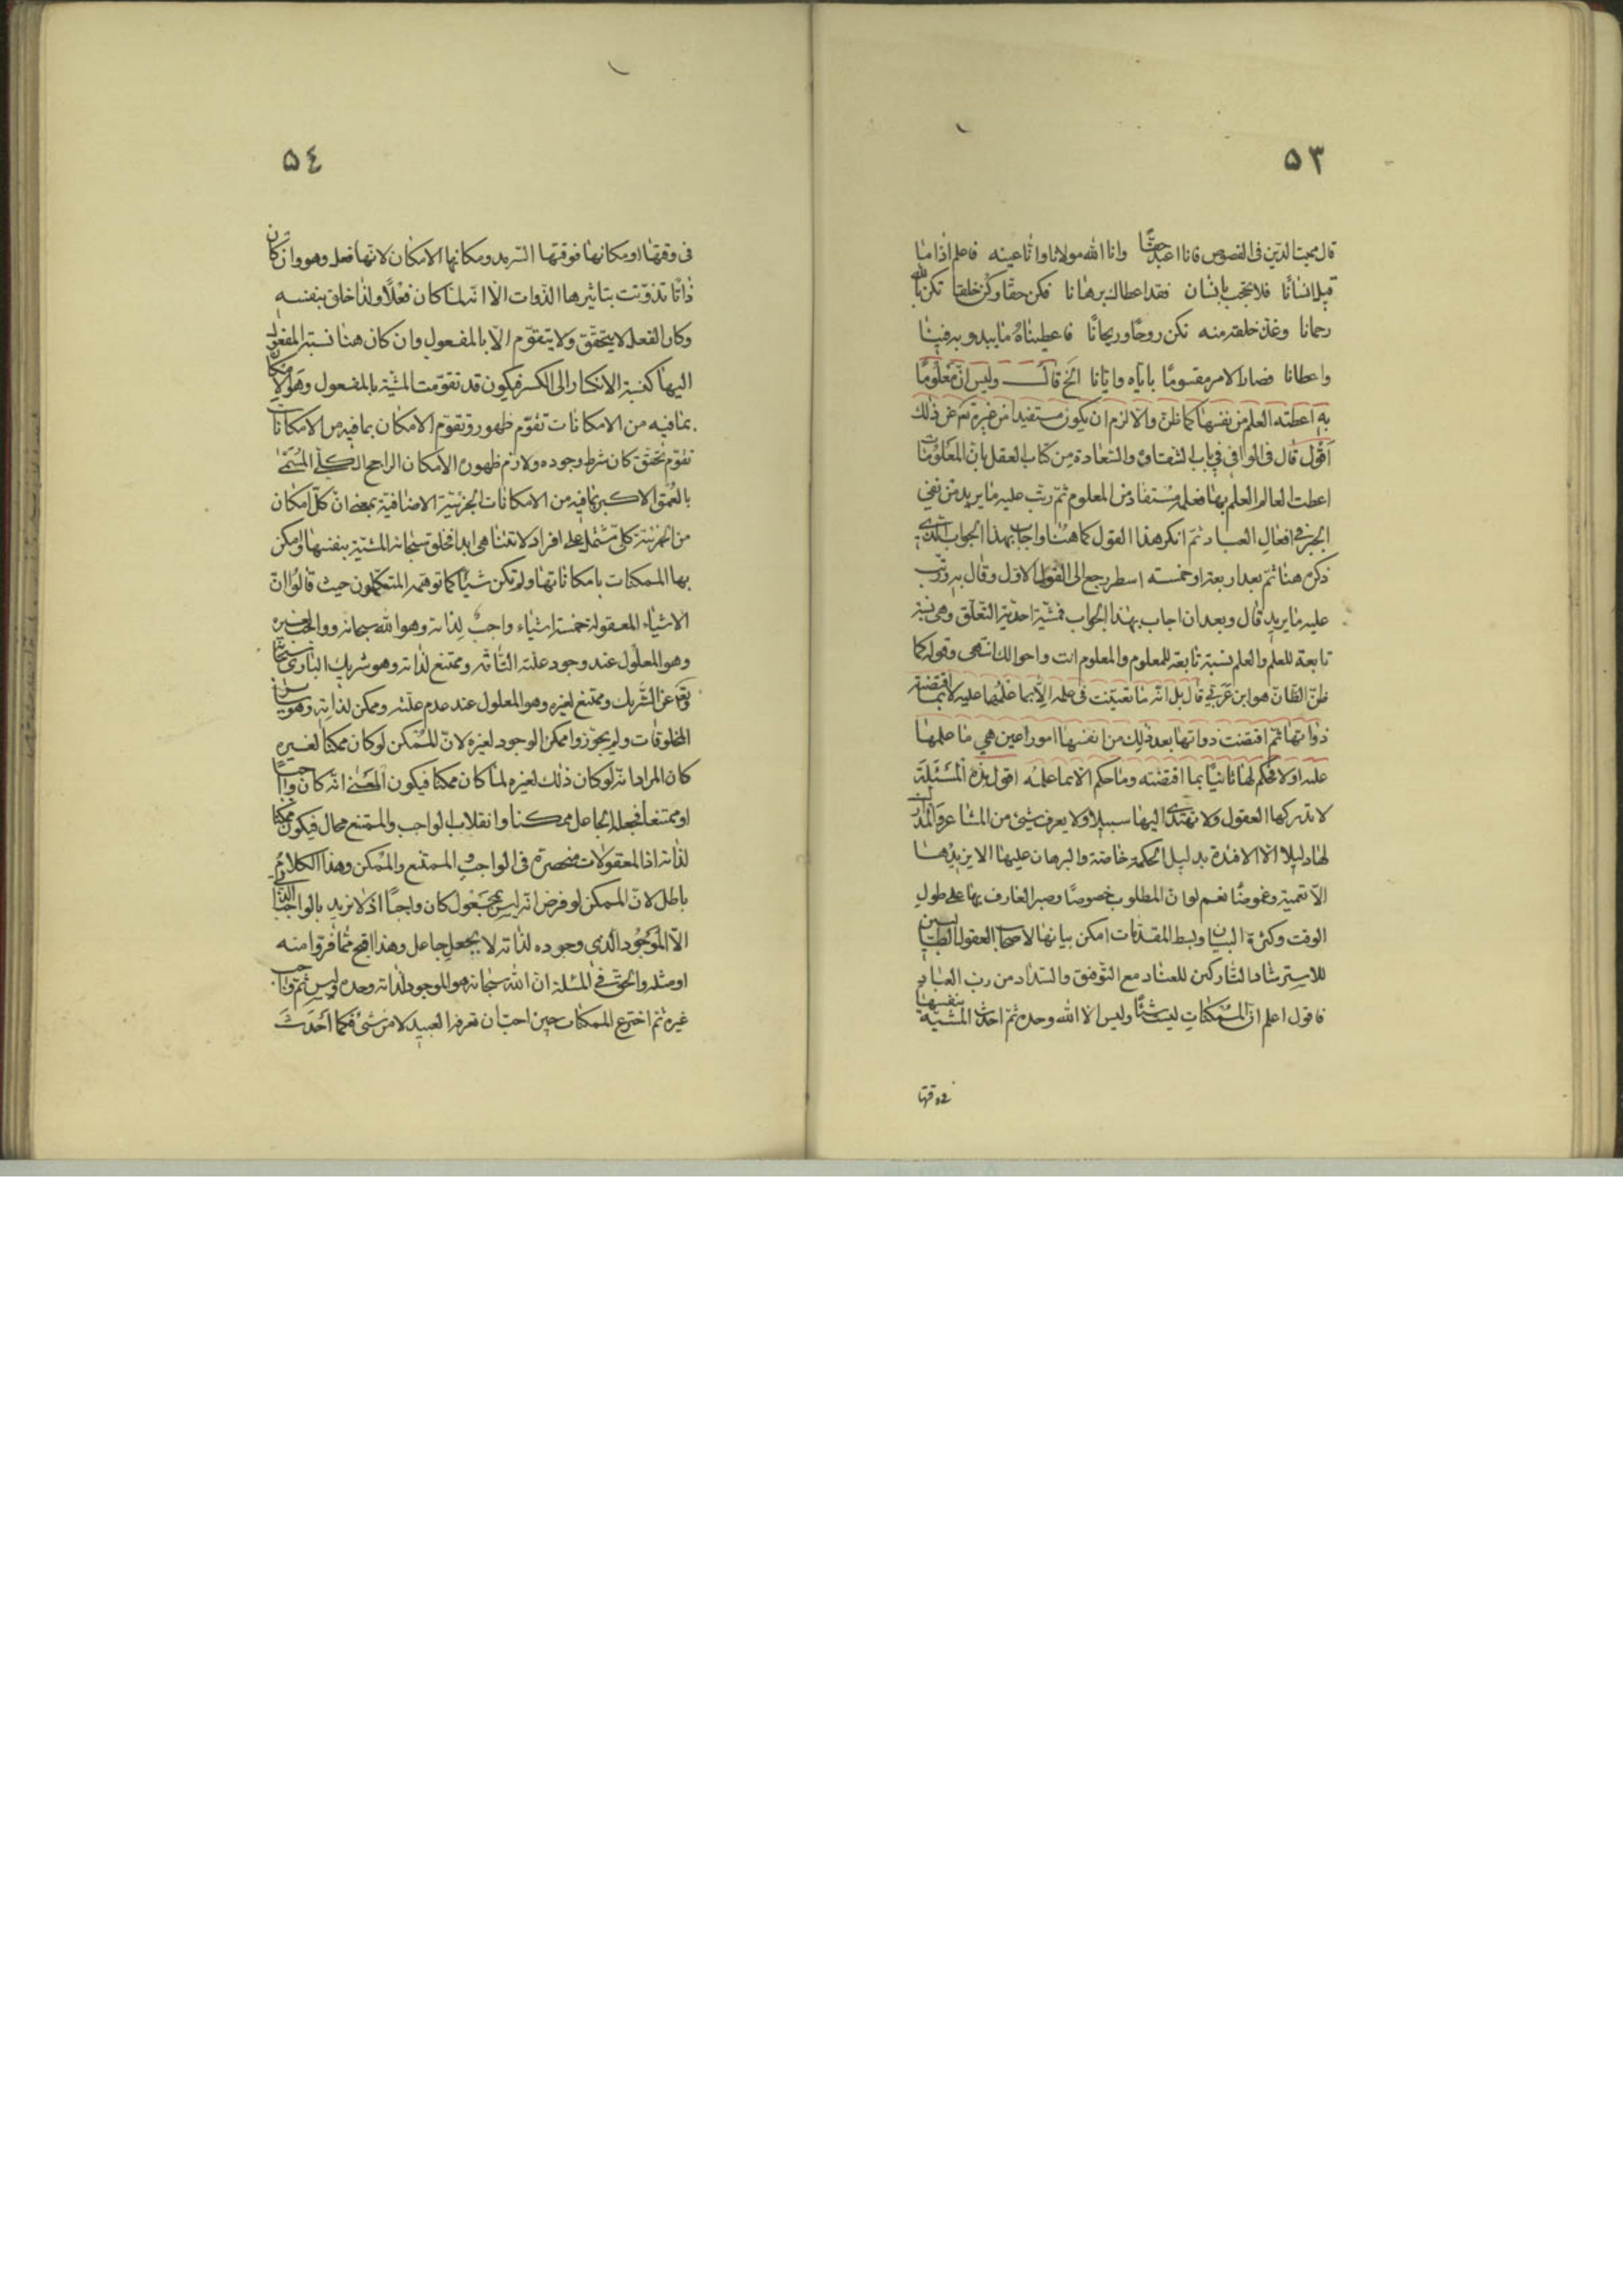 ٥٣
قال محیی الدین فی الفصوص فانا اعبد حقا وانا الله مولانا وانا عینه فاعلم اذا ما
قیل انسانا فلا تحجب بانسان فقد اعطاك برهانا فکن حقا وکن خلقا تکن بالله
رحمانا وغذ خلقه منه تکن روحا وریحانا فاعطیناه ما یبدو به فینا
واعطانا فصار الامر مقسوما بایاه وایانا الخ قال ولیس ان معلوما
به اعطته العلم من نفسها کما ظن والا لزم ان یکون مستفیدا من غیره تم عن ذلك
اقول قال فی الوافی فی باب الشقاوة والسعادة من کتاب العقل بان المعلومات
اعطت العالم العلم بها فعلمه مستفاد من المعلوم ثم رتب علیه ما یرید من نفی
الجبر فی افعال العباد ثم انکر هذا القول کما هنا واجاب بهذا الجواب الذی
ذکره هنا ثم بعد اربعة او خمسة اسطر رجع الی القول الاول وقال به ورتب
علیه ما یرید قال وبعد ان اجاب بهذا الجواب فمشیته احدیة التعلق وهی نسبة
تابعة للعلم والعلم نسبة تابعة للمعلوم والمعلوم انت واحوالك انتهی وقوله کما
ظن الظان هو ابن عربی قال بل انه ما تعینت فی علمه الا بما علمها علیه لا بما اقتضته
ذواتها ثم اقتضت ذواتها بعد ذلك من انفسها امورا عین هی ما علمها
علیه اولا فحکم لها ثانیا بما اقتضته وما حکم الا بما علمه اقول هذه المسئلة
لا تدرکها العقول ولا تهتدی الیها سبیلا ولا یعرف شیئ من المشاعر والمدارك
لها دلیلا الا الافئدة بدلیل الحکمة خاصة والبرهان علیها لا یزیدها
الا تعمیة وغموضا نعم لو ان المطلوب خصوصا وصبر العارف بها علی طول
الوقت وکثرة البیان وبسط المقدمات امکن بیانها لاصحاب العقول الطالبین
للاسترشاد التارکین للعناد مع التوفیق والسداد من رب العباد
فاقول اعلم ان الممکنات لیست شیئا ولیس الا الله وحده ثم احدث المشیة بنفسها
فی وقتها
٥٤
فی وقتها ومکانها فوقتها السرمد ومکانها الامکان لانها فعل وهو وان کان
ذاتا تذوتت بتاثیرها الذوات الا انه لما کان فعلا ولذا خلق بنفسه
وکان الفعل لا یتحقق ولا یتقوم الا بالمفعول وان کان هنا نسبة المفعول
الیها کنسبة الانکسار الی الکسر فیکون قد تقومت المشیة بالمفعول وهو الامکان
بما فیه من الامکانات تقوم ظهور وتقوم الامکان بما فیه من الامکانات
تقوم تحقق کان شرط وجوده ولازم ظهوره الامکان الراجح الکلی المسمی
بالعمق الاکبر بما فیه من الامکانات الجزئیة الاضافیة بمعنی ان کل امکان
من الجزئیة کلی مشتمل علی افراد لا تتناهی ابدا فخلق سبحانه المشیة بنفسها وامکن
بها الممکنات بامکاناتها ولم تکن شیئا کما توهمه المتکلمون حیث قالوا ان
الاشیاء المعقولة خمسة اشیاء واجب لذاته وهو الله سبحانه وواجب لغیره
وهو المعلول عند وجود علته التامة وممتنع لذاته وهو شریك الباری سبحانه
وتع عن الشریك وممتنع لغیره وهو المعلول عند عدم علته وممکن لذاته وهو سایر
المخلوقات ولم یجوزوا ممکن الوجود لغیره لان الممکن لو کان ممکنا لغیره
کان المراد انه لو کان ذلك لغیره لما کان ممکنا فیکون المعنی انه کان واجبا
او ممتنعا فجعله الجاعل ممکنا وانقلاب الواجب والممتنع محال فیکون ممکنا
لذاته اذا المعقولات منحصرة فی الواجب والممتنع والممکن وهذا الکلام
باطل لان الممکن لو فرض انه لیس بمجعول کان واجبا اذ لا نرید بالواجب لذاته
الا الموجود الذی وجوده لذاته لا بجعل جاعل وهذا اقبح مما فروا منه
او مثله والحق فی المسئلة ان الله سبحانه هو الموجود لذاته وحده ولیس ثم واجب
غیره ثم اخترع الممکنات حین احب ان تعرفه العبید لا من شئ فکما احدث